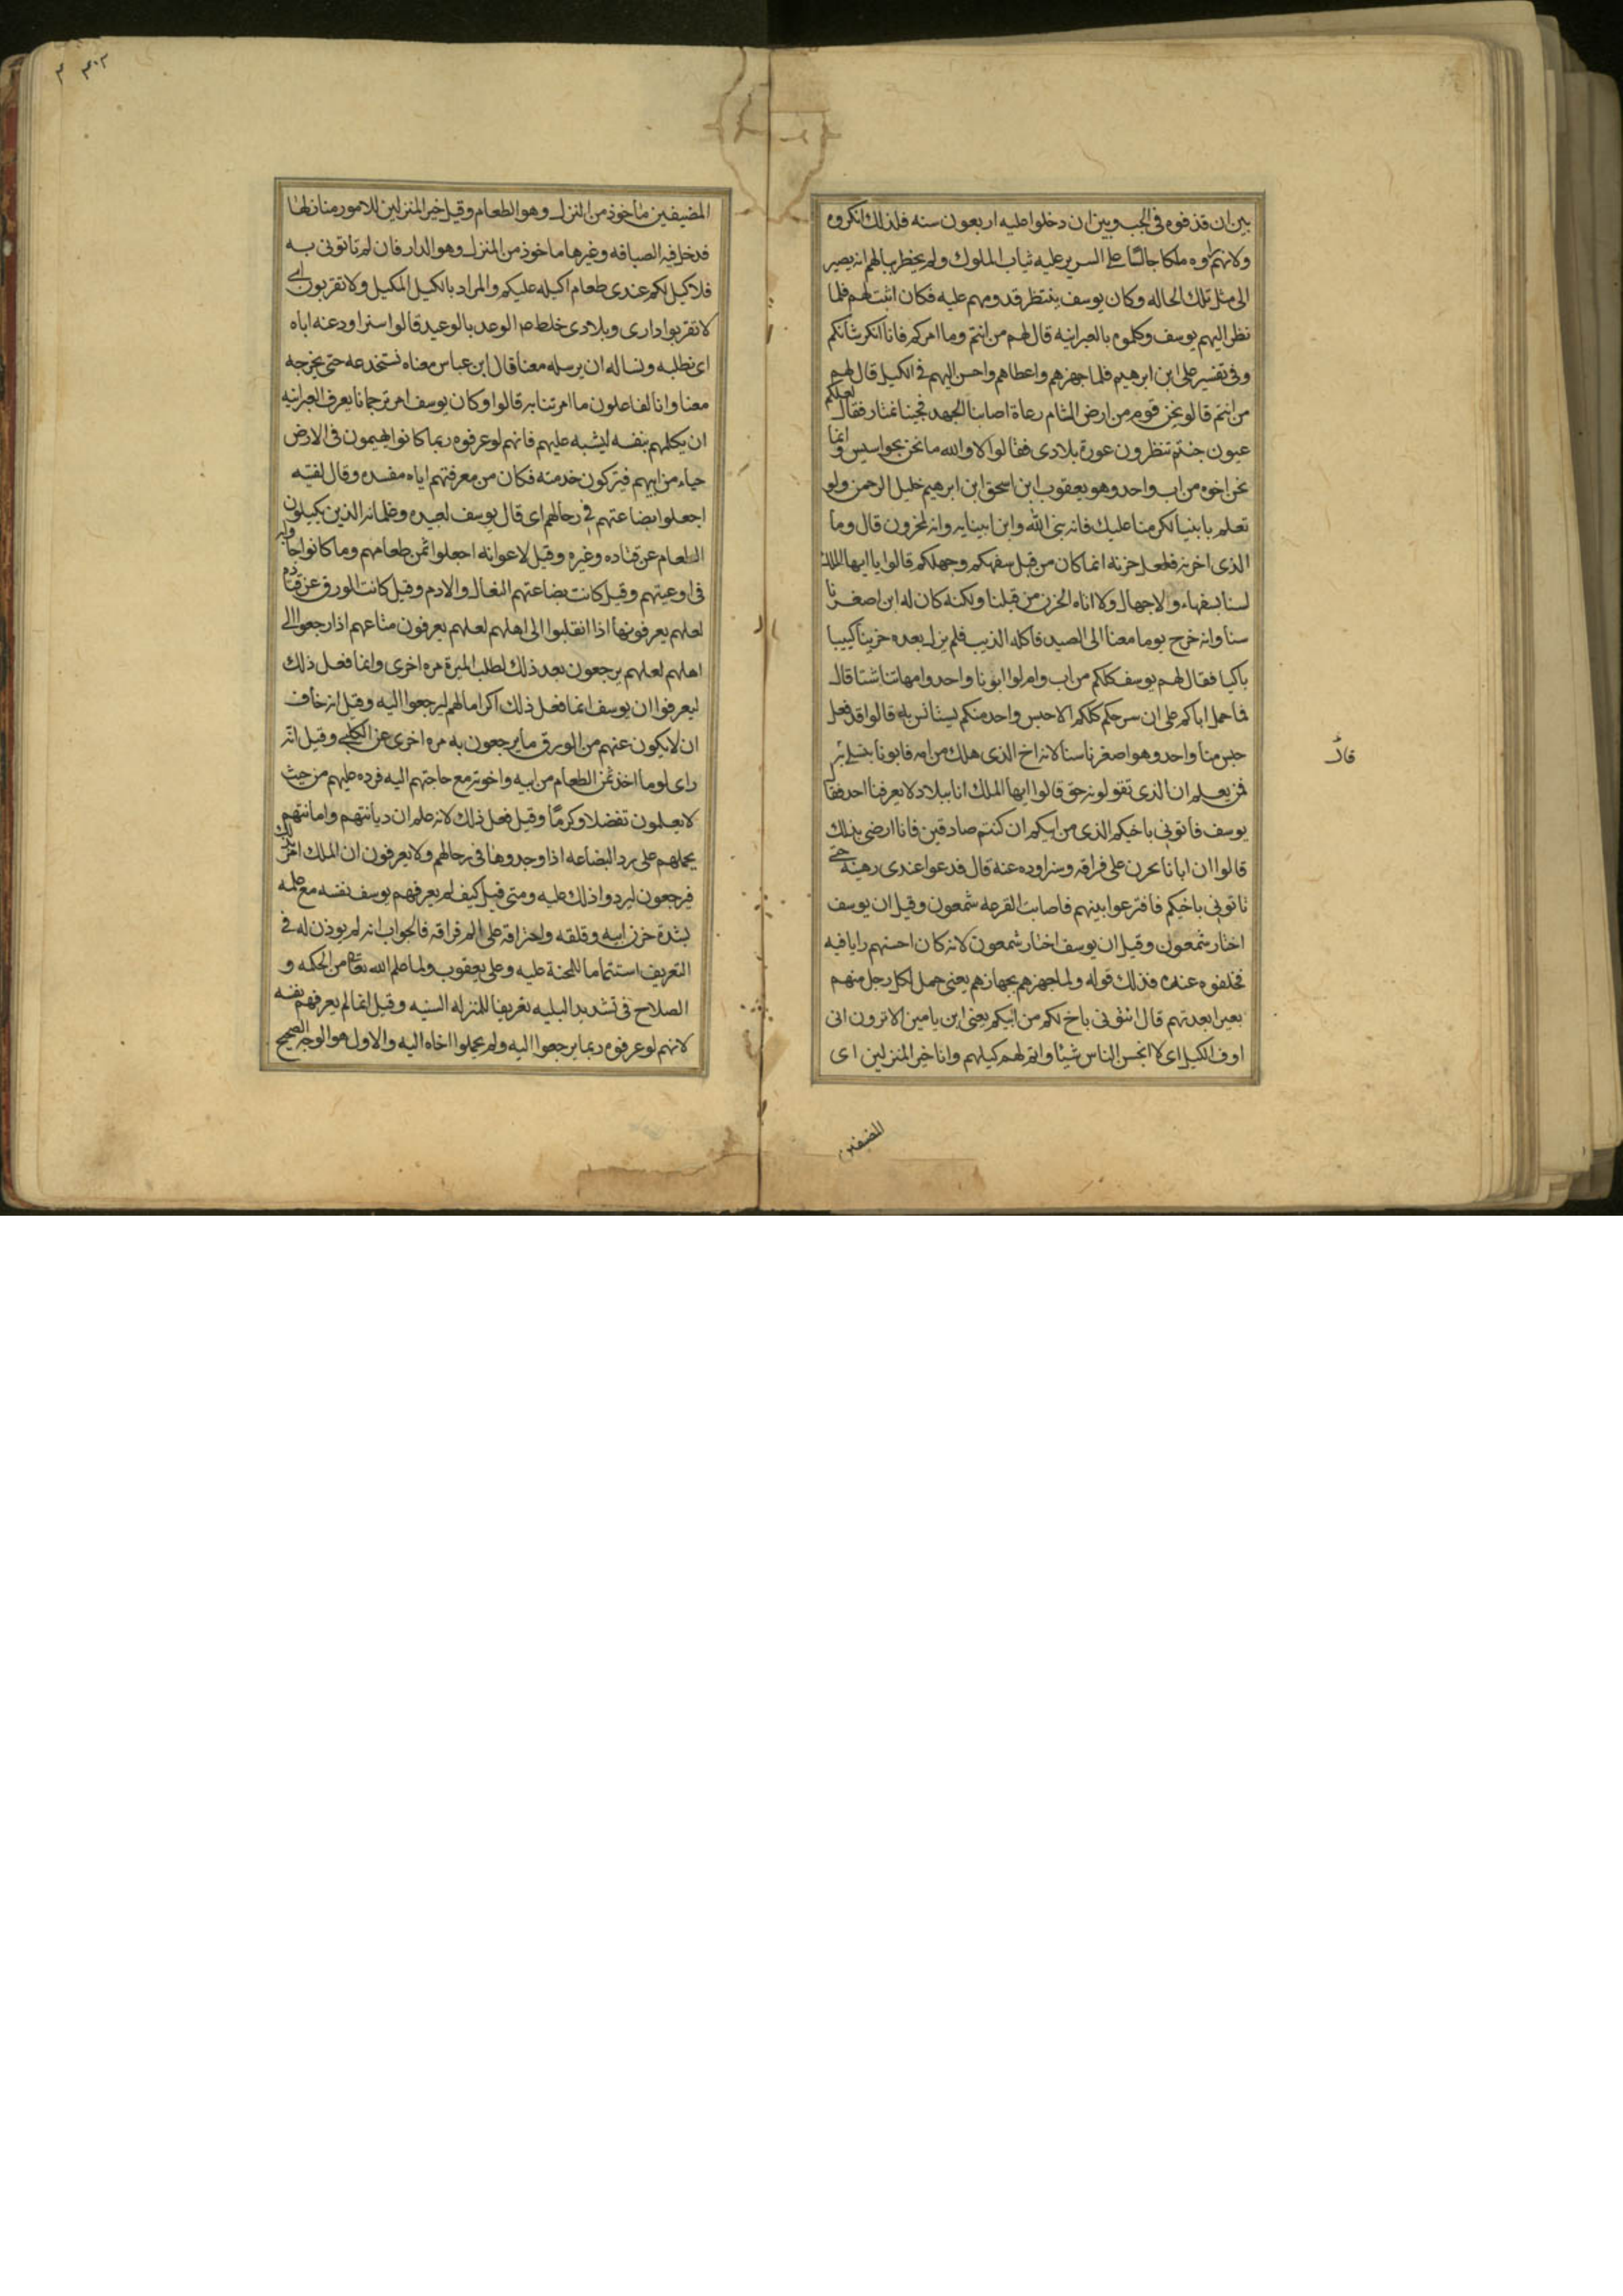 بين ان قذفوه فى الجب وبين ان دخلوا عليه اربعون سنه فلذلك انكروه
ولانهم راوه ملكا جالسا على السرير عليه ثياب الملوك ولم يخطر ببالهم انه يصير
الى مثل تلك الحاله وكان يوسف ينتظر قدومهم عليه فكان اثبت لهم فلما
نظر اليهم يوسف وكلموه بالعبرانيه قال لهم من انتم وما امركم فانا انكر شانكم
وفى تفسير على ابن ابرهيم فلما جهزهم واعطاهم واحسن اليهم فى الكيل قال لهم
من انتم قالو نحن قوم من ارض الشام رعاة اصابنا الجهد فجينا نمتار فقال لعلكم
عيون جئتم تنظرون عورة بلادى فقالوا لا والله ما نحن بجواسيس وانما
نحن اخوه من اب واحد وهو يعقوب ابن اسحق ابن ابرهيم خليل الرحمن ولو
تعلم بابينا لكرمنا عليك فانه نبى الله وابن انبيايه وانه لمحزون قال وما
الذى احزنه فلعل حزنه انما كان من قبل سفهكم وجهلكم قالوا يا ايها الملك
لسنا بسفهاء ولا جهال ولا اتاه الحزن من قبلنا ولكنه كان له ابن اصغرنا
سنا وانه خرج يوما معنا الى الصيد فاكله الذيب فلم يزل بعده حزينا كييبا
باكيا فقال لهم يوسف كلكم من اب وام قالوا ابونا واحد وامهاتنا شتا قال
فما حمل اباكم على ان سرحكم كلكم الا حبس واحد منكم يستانس به قالوا قد فعل
حبس منا واحد وهو اصغرنا سنا لانه اخ الذى هلك من امه فابونا يتسلى به
فمن يعلم ان الذى تقولونه حق قالوا ايها الملك انا ببلاد لا يعرفنا احد فقال
يوسف فاتونى باخيكم الذى من ابيكم ان كنتم صادقين فانا ارضى بذلك
قالوا ان ابانا يحزن على فراقه وسنراوده عنه قال فدعوا عندى رهينة حتى
تاتونى باخيكم فاقترعوا بينهم فاصابت القرعه شمعون وقيل ان يوسف
اختار شمعون وقيل ان يوسف اختار شمعون لانه كان احسنهم رايا فيه
فخلفوه عنده فذلك قوله ولما جهزهم بجهازهم يعنى حمل لكل رجل منهم
بعيرا بعدتهم قال ائتونى باخ لكم من ابيكم يعنى ابن يامين الا ترون انى
اوف الكيل اى لا ابخس الناس شيئا واتم لهم كيلهم وانا خير المنزلين اى
المضيفين
قال
٣٠٢ ٣
المضيفين ماخوذ من النزل وهو الطعام وقيل خير المنزلين للامور منازلها
فدخل فيه الضيافه وغيرها ماخوذ من المنزل وهو الدار فان لم تاتونى به
فلا كيل لكم عندى طعام اكيله عليكم والمراد بالكيل المكيل ولا تقربون اى
لا تقربوا دارى وبلادى خلط الوعد بالوعيد قالوا سنراود عنه اباه
اى نطلبه ونساله ان يرسله معنا قال ابن عباس معناه نستخدعه حتى يخرجه
معنا وانا لفاعلون ما امرتنا به قالوا وكان يوسف امر ترجمانا يعرف العبرانيه
ان يكلمهم بنفسه ليشبه عليهم فانهم لو عرفوه ربما كانوا يهيمون فى الارض
حياء من ابيهم فيتركون خدمته فكان من معرفتهم اياه مفسده وقال لفتيه
اجعلوا بضاعتهم فى رحالهم اى قال يوسف لعبيده وغلمانه الذين يكيلون
الطعام عن قتاده وغيره وقيل لاعوانه اجعلوا ثمن طعامهم وما كانوا جاوا به
فى اوعيتهم وقيل كانت بضاعتهم النعال والادم وقيل كانت الورق عن قتاده
لعلهم يعرفونها اذا انقلبوا الى اهلهم لعلهم يعرفون متاعهم اذا رجعوا الى
اهلهم لعلهم يرجعون بعد ذلك لطلب الميرة مره اخرى وانما فعل ذلك
ليعرفوا ان يوسف انما فعل ذلك اكراما لهم ليرجعوا اليه وقيل انه خاف
ان لا يكون عندهم من الورق ما يرجعون به مره اخرى عن الكلبى وقيل انه
راى لوما اخذ ثمن الطعام من ابيه واخوته مع حاجتهم اليه فرده عليهم من حيث
لا يعلمون تفضلا وكرما وقيل فعل ذلك لانه علم ان ديانتهم وامانتهم
يحملهم على رد البضاعه اذا وجدوها فى رحالهم ولا يعرفون ان الملك امر بذلك
فيرجعون ليردوا ذلك عليه ومتى قيل كيف لم يعرفهم يوسف نفسه مع علمه
بشدة حزن ابيه وقلقه واحتراقه على الم فراقه فالجواب انه لم يوذن له فى
التعريف استتماما للمحنة عليه وعلى يعقوب ولما علم الله تعالى من الحكمه و
الصلاح فى تشديد البليه تعريضا للمنزله السنيه وقيل انما لم يعرفهم بنفسه
لانهم لو عرفوه ربما يرجعوا اليه ولم يحملوا اخاه اليه والاول هو الوجه الصحيح